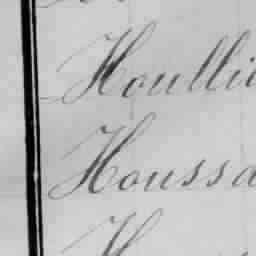 Houlli
Houssa
H